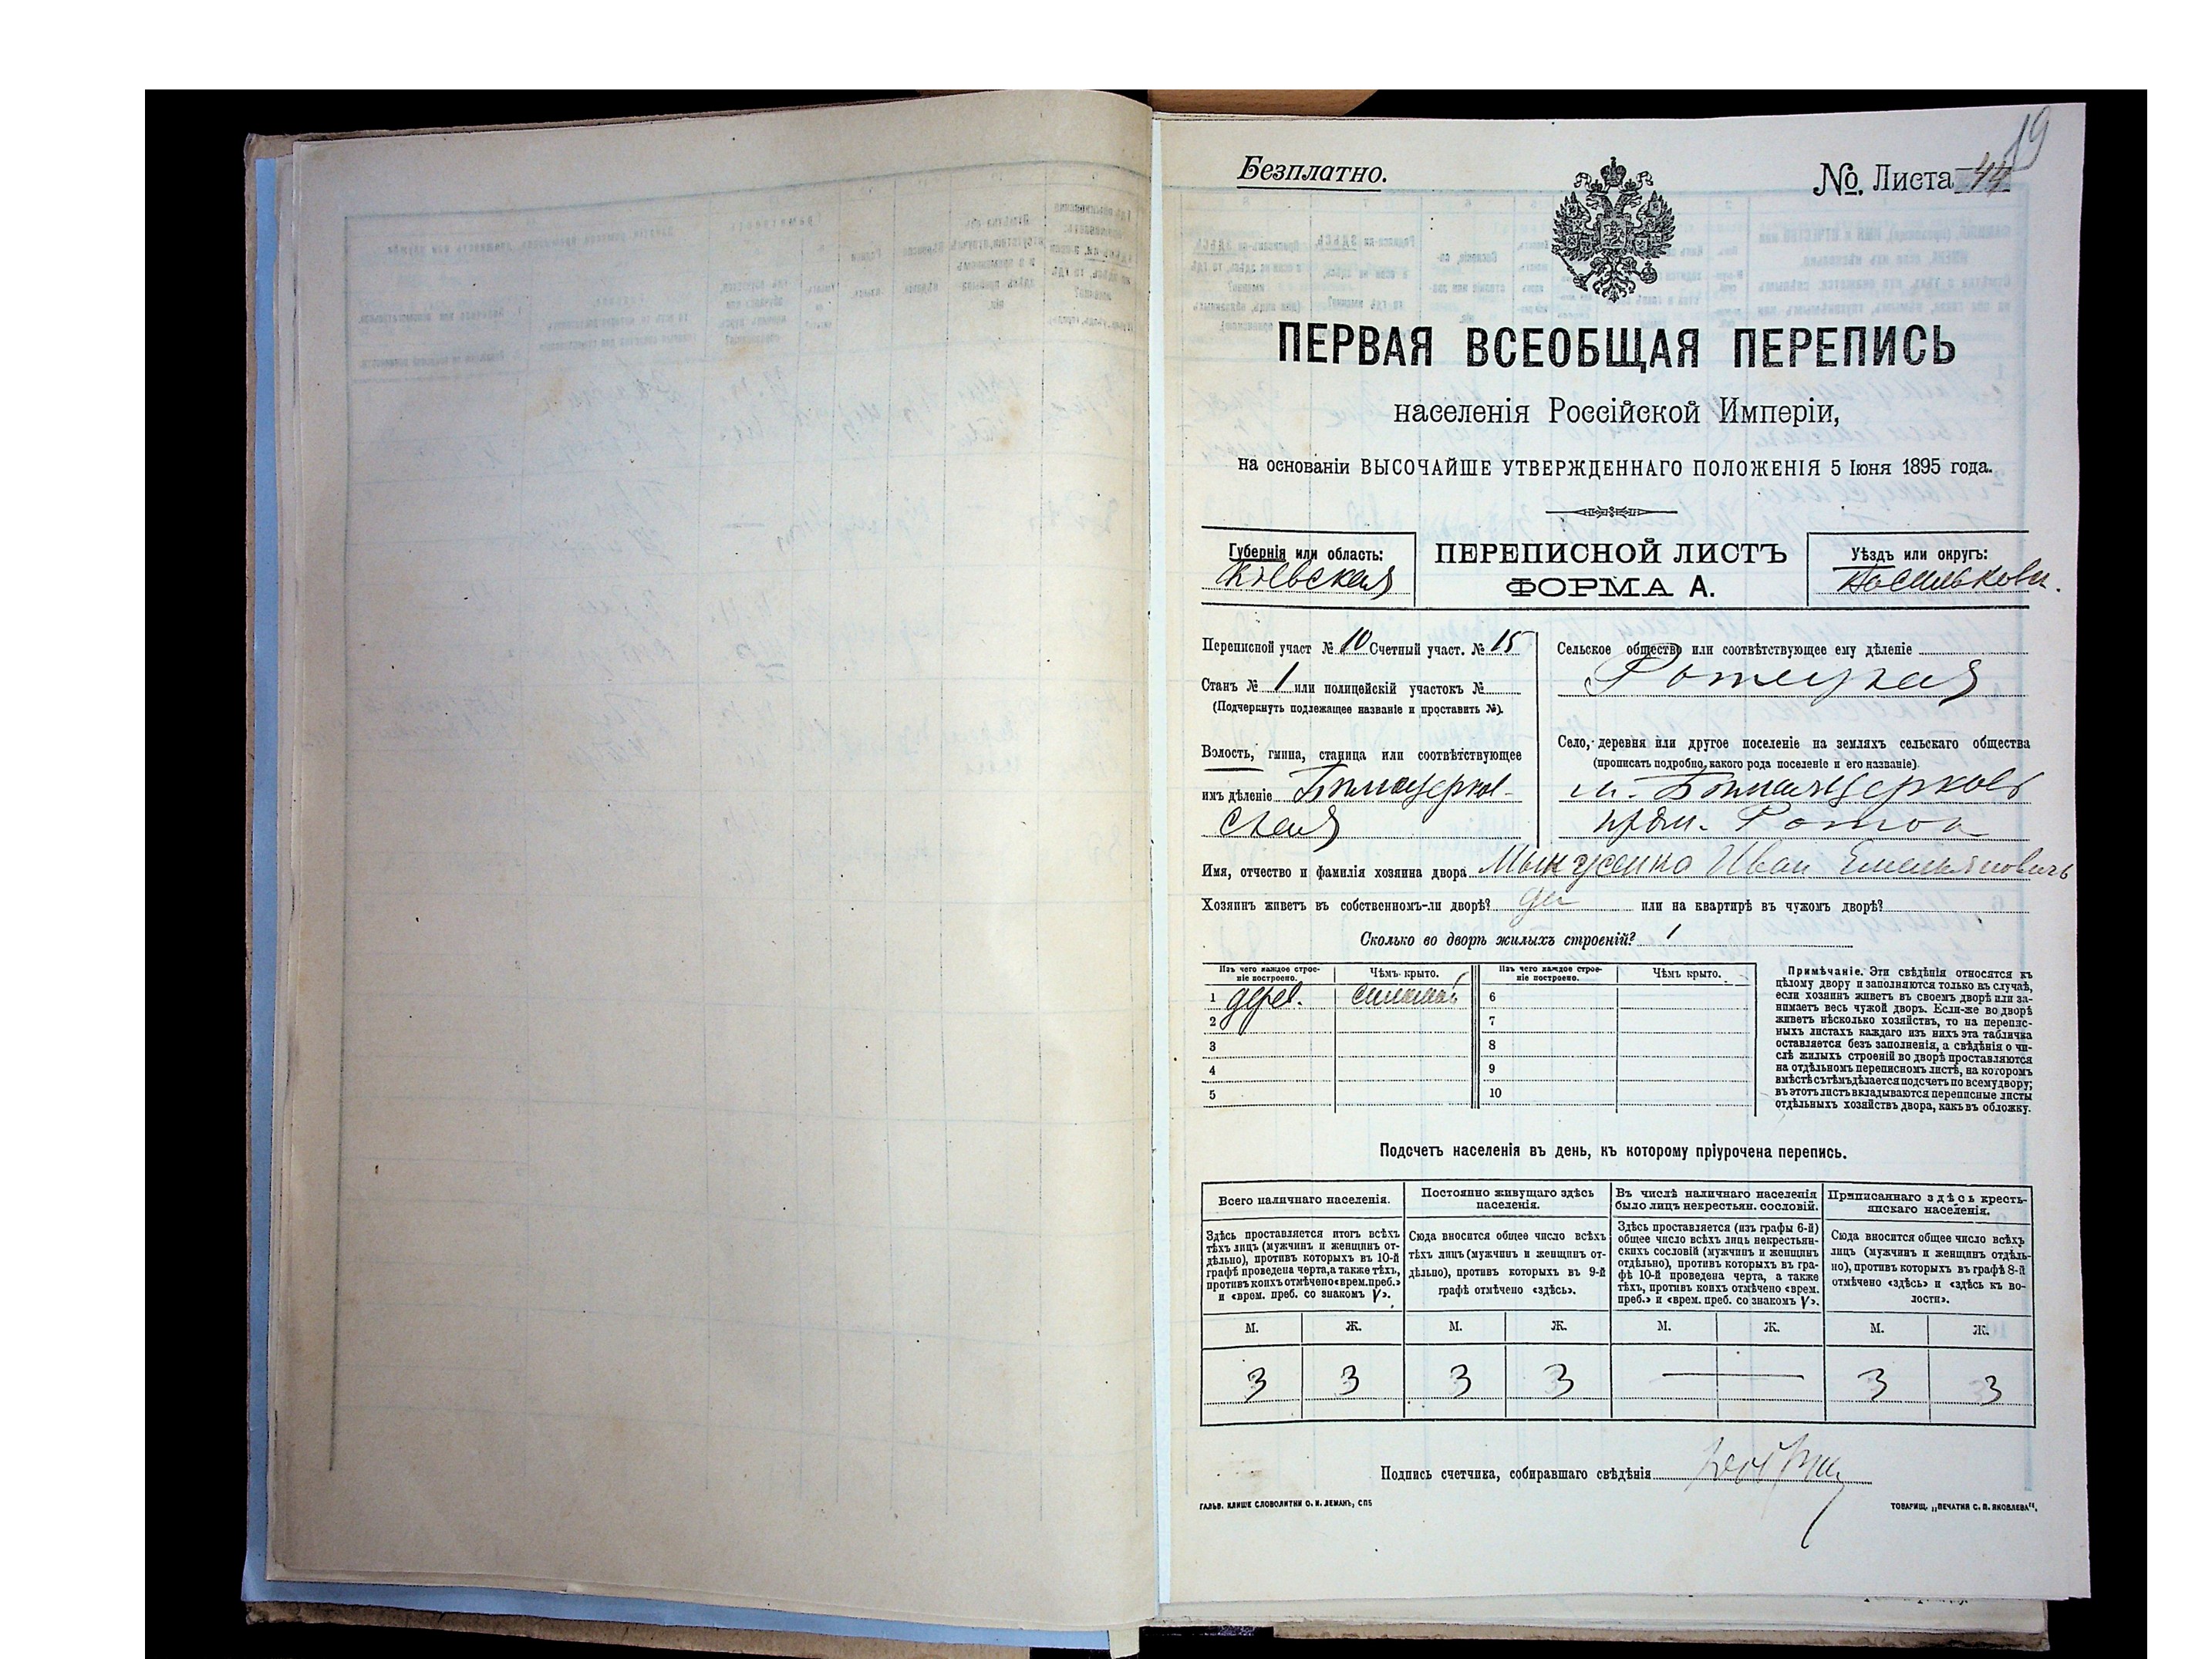 19
Безплатно.
№ Листа 44
ПЕРВАЯ ВСЕОБЩАЯ ПЕРЕПИСЬ
населенія Россійской Имперіи,
на основаніи ВЫСОЧАЙШЕ УТВЕРЖДЕННАГО ПОЛОЖЕНІЯ 5 Іюня 1895 года.
Губернія или область:
Кіевская
ПЕРЕПИСНОЙ ЛИСТЪ
ФОРМА А.
Уѣздъ или округъ:
Васильковск.
Переписной участ № 10 Счетный участ. № 15
Станъ № 1 или полицейскій участокъ №
(Подчеркнуть подлежащее названіе и проставить №).
Волость, гмина, станица или соотвѣтствующее
имъ дѣленіе Бѣлоцерков-
ская
Сельское общество или соотвѣтствующее ему дѣленіе
Ротецкая
Село, деревня или другое поселеніе на земляхъ сельскаго общества
(прописать подробно, какого рода поселеніе и его названіе).
м. Бѣлая Церковь
прям. Роток
Имя, отчество и фамилія хозяина двора Иван Емельянович
Хозяинъ живетъ въ собственномъ-ли дворѣ? да или на квартирѣ въ чужомъ дворѣ?
Сколько во дворѣ жилыхъ строеній? 1
Изъ чего каждое строе-
ніе построено.
Чѣмъ крыто.
Изъ чего каждое строе-
ніе построено.
Чѣмъ крыто.
1 дерев. соломой 6
2 7
3 8
4 9
5 10
Примѣчаніе. Эти свѣдѣнія относятся къ
цѣлому двору и заполняются только въ случаѣ,
если хозяинъ живетъ въ своемъ дворѣ или за-
нимаетъ весь чужой дворъ. Если-же во дворѣ
живетъ нѣсколько хозяйствъ, то на перепис-
ныхъ листахъ каждаго изъ нихъ эта табличка
оставляется безъ заполненія, а свѣдѣнія о чи-
слѣ жилыхъ строеній во дворѣ проставляются
на отдѣльномъ переписномъ листѣ, на которомъ
вмѣстѣ съ тѣмъ дѣлается подсчетъ по всему двору;
въ этотъ листъ вкладываются переписные листы
отдѣльныхъ хозяйствъ двора, какъ въ обложку.
Подсчетъ населенія въ день, къ которому пріурочена перепись.
Всего наличнаго населенія.
Здѣсь проставляется итогъ всѣхъ
тѣхъ лицъ (мужчинъ и женщинъ от-
дѣльно), противъ которыхъ въ 10-й
графѣ проведена черта, а также тѣхъ,
противъ коихъ отмѣчено «врем. преб.»
и «врем. преб. со знакомъ V».
Постоянно живущаго здѣсь
населенія.
Сюда вносится общее число всѣхъ
тѣхъ лицъ (мужчинъ и женщинъ от-
дѣльно), противъ которыхъ въ 9-й
графѣ отмѣчено «здѣсь».
Въ числѣ наличнаго населенія
было лицъ некрестьян. сословій.
Здѣсь проставляется (изъ графы 6-й)
общее число всѣхъ лицъ некрестьян-
скихъ сословій (мужчинъ и женщинъ
отдѣльно), противъ которыхъ въ гра-
фѣ 10-й проведена черта, а также
тѣхъ, противъ коихъ отмѣчено «врем.
преб.» и «врем. преб. со знакомъ V».
Приписаннаго здѣсь кресть-
янскаго населенія.
Сюда вносится общее число всѣхъ
лицъ (мужчинъ и женщинъ отдѣль-
но), противъ которыхъ въ графѣ 8-й
отмѣчено «здѣсь» и «здѣсь къ во-
лости».
М. Ж. М. Ж. М. Ж. М. Ж.
3 3 3 3 — 3 3
Подпись счетчика, собиравшаго свѣдѣнія
ГАЛЬВ. КЛИШЕ СЛОВОЛИТНИ О. И. ЛЕМАНЪ, СПБ
ТОВАРИЩ. „ПЕЧАТНЯ С. П. ЯКОВЛЕВА“.